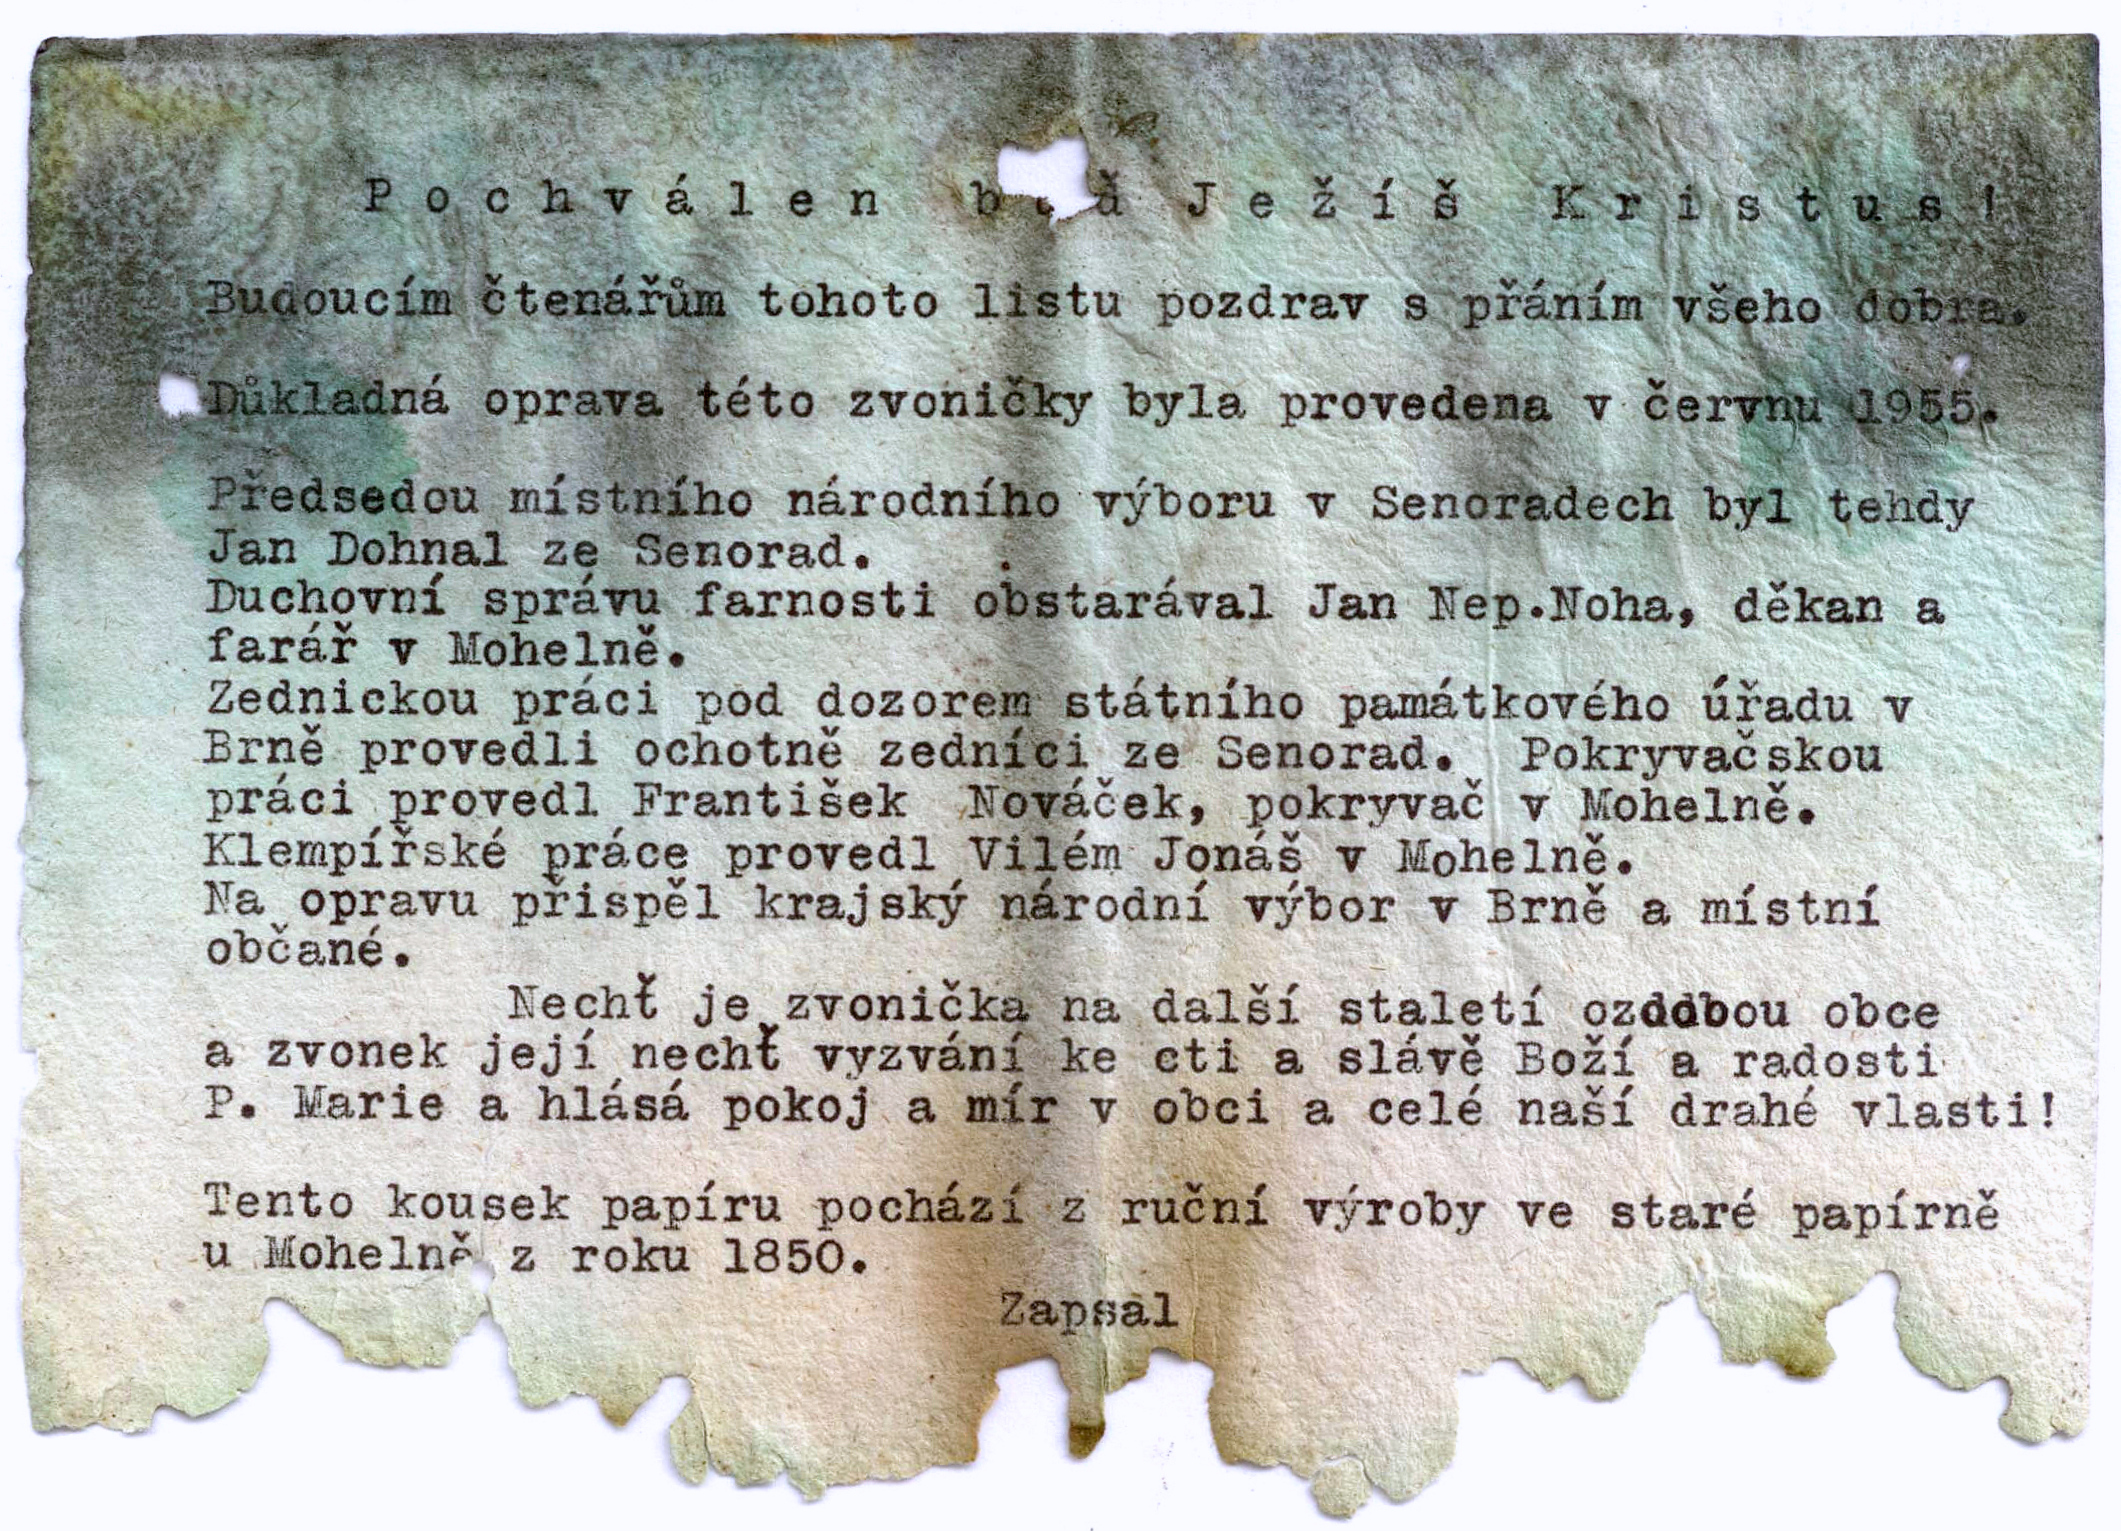 P o c h v á l e n J e ž í š K r i s t u s !
Budoucím čtenářům tohoto listu pozdrav s přáním všeho dobra.
Důkladná oprava této zvoničky byla provedena v červnu 1955.
Předsedou místního národního výboru v Senoradech byl tehdy
Jan Dohnal ze Senorad.
Duchovní správu farnosti obstarával Jan Nep.Noha, děkan a
farář v Mohelně.
Zednickou práci pod dozorem státního památkového úřadu v
Brně provedli ochotně zedníci ze Senorad. Pokryvačskou
práci provedl František Nováček, pokryvač v Mohelně.
Klempířské práce provedl Vilém Jonáš v Mohelně.
Na opravu přispěl krajský národní výbor v Brně a místní
občané.
Nechť je zvonička na další staletí ozddbou obce
a zvonek její nechť vyzvání ke cti a slávě Boží a radosti
P. Marie a hlásá pokoj a mír v obci a celé naší drahé vlasti!
Tento kousek papíru pochází z ruční výroby ve staré papírně
u Mohelně z roku 1850.
Zapsal